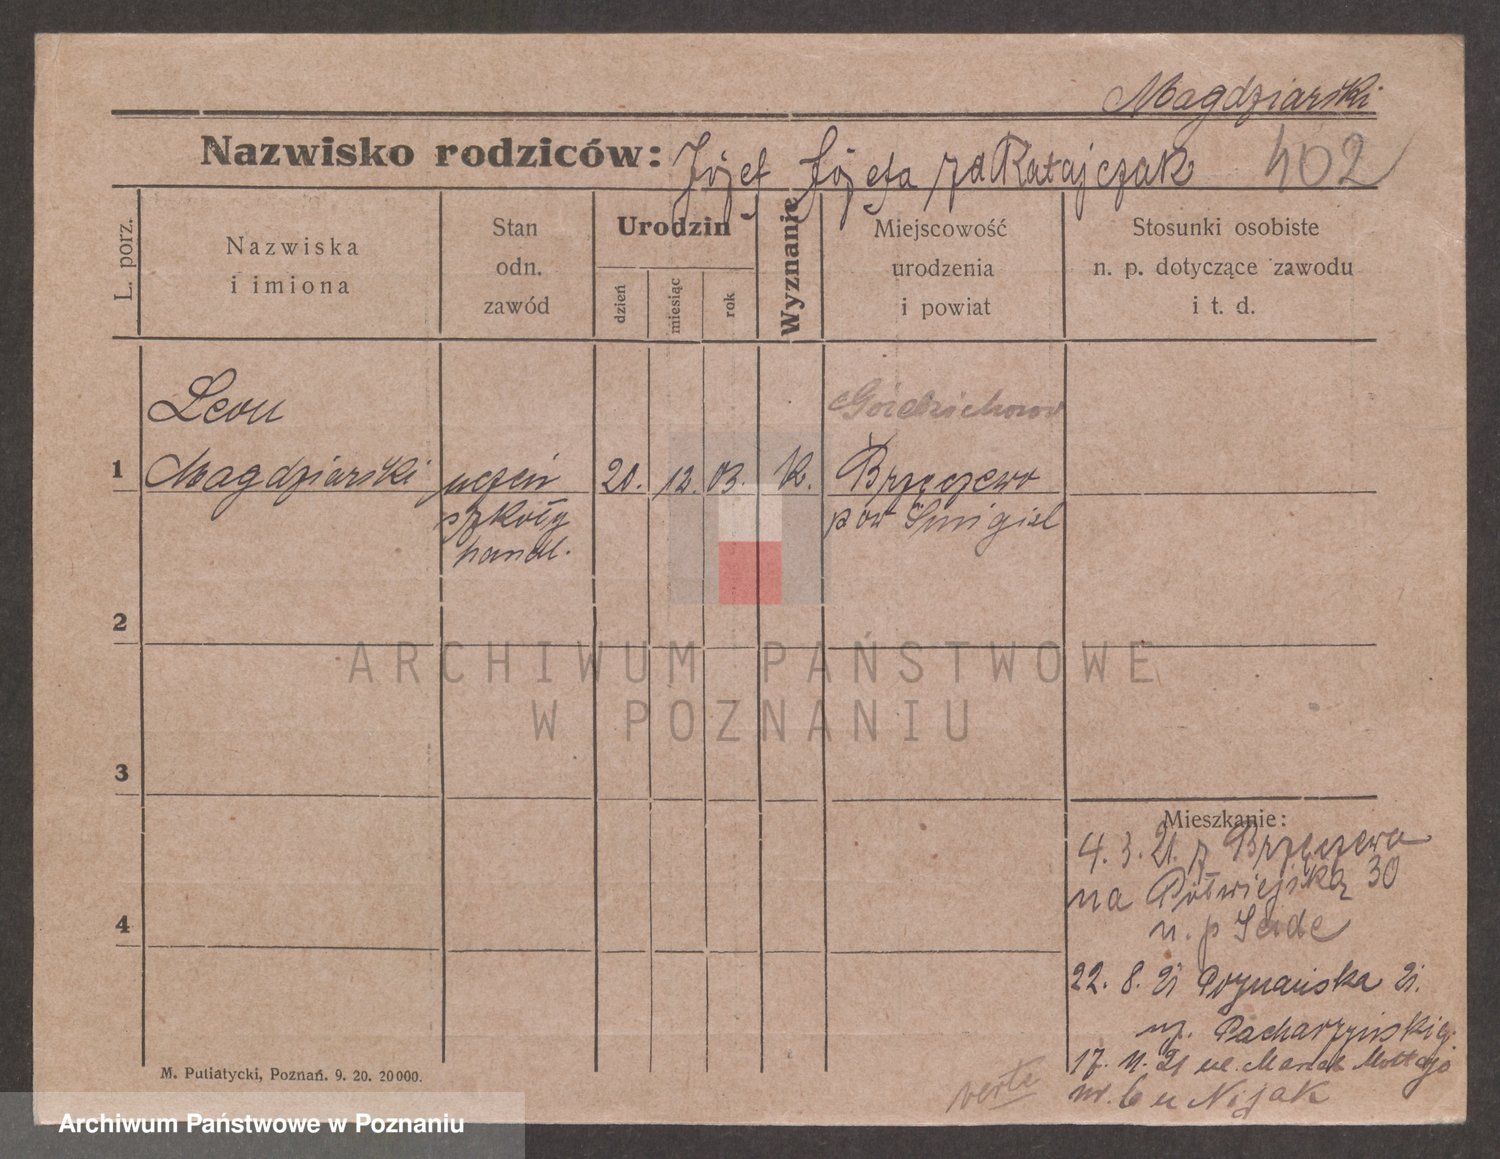 Magdziarski
Nazwisko rodziców: Józef Józefa zd Ratajczak 402
L. porz.
Nazwiska
i imiona
Stan
odn.
zawód
Urodzin
dzień
miesiąc
rok
Wyznanie
Miejscowość
urodzenia
i powiat
Stosunki osobiste
n. p. dotyczące zawodu
i t. d.
Leon
1 Magdziarski uczeń 20. 12. 03. k. Brzęczewo
szkoły pow Śmigiel
handl.
2
ARCHIWUM PAŃSTWOWE
W POZNANIU
3
Mieszkanie:
4. 3. 21. z Brzęczewa
na Półwiejską 30
4 u. p
22. 8. 21 Poznańska 21.
17. 11. 21 ul.
nr. 6 u
verte
M. Putiatycki, Poznań. 9. 20. 20000.
Archiwum Państwowe w Poznaniu